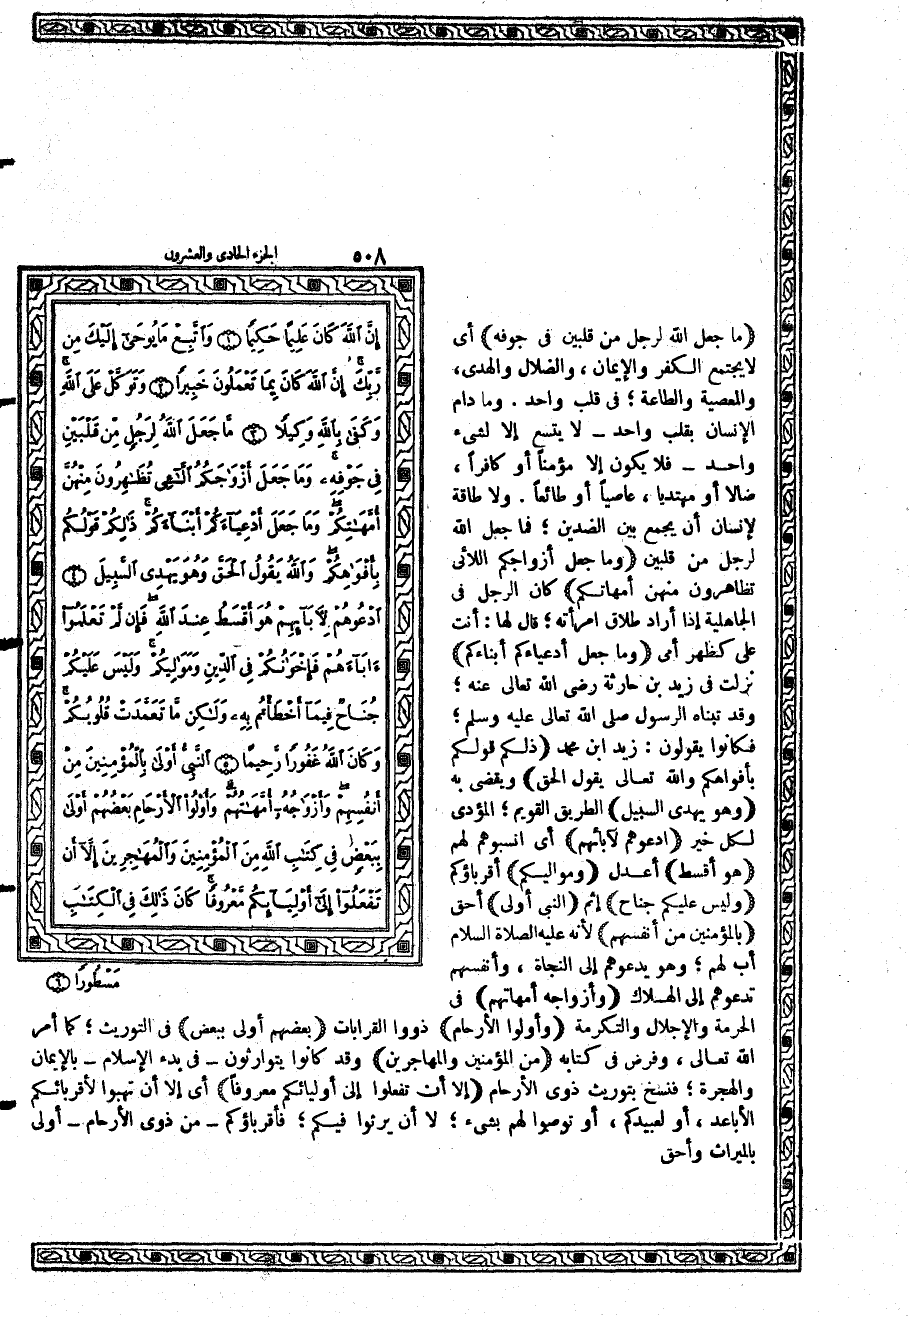 ٥٠٨ الجزء الحادى والعشرون
إِنَّ ٱللَّهَ كَانَ عَلِيمًا حَكِيمًا ۝١ وَٱتَّبِعْ مَا يُوحَىٰٓ إِلَيْكَ مِن
رَّبِّكَ ۚ إِنَّ ٱللَّهَ كَانَ بِمَا تَعْمَلُونَ خَبِيرًا ۝٢ وَتَوَكَّلْ عَلَى ٱللَّهِ ۚ
وَكَفَىٰ بِٱللَّهِ وَكِيلًا ۝٣ مَّا جَعَلَ ٱللَّهُ لِرَجُلٍ مِّن قَلْبَيْنِ
فِى جَوْفِهِۦ ۚ وَمَا جَعَلَ أَزْوَٰجَكُمُ ٱلَّٰٓـِٔى تُظَٰهِرُونَ مِنْهُنَّ
أُمَّهَٰتِكُمْ ۚ وَمَا جَعَلَ أَدْعِيَآءَكُمْ أَبْنَآءَكُمْ ۚ ذَٰلِكُمْ قَوْلُكُم
بِأَفْوَٰهِكُمْ ۖ وَٱللَّهُ يَقُولُ ٱلْحَقَّ وَهُوَ يَهْدِى ٱلسَّبِيلَ ۝٤
ٱدْعُوهُمْ لِأٓبَآئِهِمْ هُوَ أَقْسَطُ عِندَ ٱللَّهِ ۚ فَإِن لَّمْ تَعْلَمُوٓا۟
ءَابَآءَهُمْ فَإِخْوَٰنُكُمْ فِى ٱلدِّينِ وَمَوَٰلِيكُمْ ۚ وَلَيْسَ عَلَيْكُمْ
جُنَاحٌ فِيمَآ أَخْطَأْتُم بِهِۦ وَلَٰكِن مَّا تَعَمَّدَتْ قُلُوبُكُمْ ۚ
وَكَانَ ٱللَّهُ غَفُورًا رَّحِيمًا ۝٥ ٱلنَّبِىُّ أَوْلَىٰ بِٱلْمُؤْمِنِينَ مِنْ
أَنفُسِهِمْ ۖ وَأَزْوَٰجُهُۥٓ أُمَّهَٰتُهُمْ ۗ وَأُو۟لُوا۟ ٱلْأَرْحَامِ بَعْضُهُمْ أَوْلَىٰ
بِبَعْضٍ فِى كِتَٰبِ ٱللَّهِ مِنَ ٱلْمُؤْمِنِينَ وَٱلْمُهَٰجِرِينَ إِلَّآ أَن
تَفْعَلُوٓا۟ إِلَىٰٓ أَوْلِيَآئِكُم مَّعْرُوفًا ۚ كَانَ ذَٰلِكَ فِى ٱلْكِتَٰبِ
مَسْطُورًا ۝٦
(ما جعل الله لرجل من قلبين فى جوفه) أى
لايجتمع الكفر والإيمان ، والضلال والهدى،
والمعصية والطاعة ؛ فى قلب واحد . وما دام
الإنسان بقلب واحد – لا يتسع إلا لشىء
واحد – فلا يكون إلا مؤمناً أو كافراً ،
ضالا أو مهتديا ، عاصياً أو طائعاً . ولا طاقة
لإنسان أن يجمع بين الضدين ؛ فما جعل الله
لرجل من قلبين (وما جعل أزواجكم اللائى
تظاهرون منهن أمهاتكم) كان الرجل فى
الجاهلية إذا أراد طلاق امرأته؛ قال لها : أنت
على كظهر أمى (وما جعل أدعياءكم أبناءكم)
نزلت فى زيد بن حارثة رضى الله تعالى عنه ؛
وقد تبناه الرسول صلى الله تعالى عليه وسلم ؛
فكانوا يقولون : زيد ابن محمد (ذلكم قولكم
بأفواهكم والله تعالى يقول الحق) ويقضى به
(وهو يهدى السبيل) الطريق القويم ؛ المؤدى
لكل خير (ادعوهم لآبائهم) أى انسبوهم لهم
(هو أقسط) أعدل (ومواليكم) أقرباؤكم
(وليس عليكم جناح) إثم (النبى أولى) أحق
(بالمؤمنين من أنفسهم) لأنه عليه الصلاة السلام
أب لهم ؛ وهو يدعوهم إلى النجاة ، وأنفسهم
تدعوهم إلى الهلاك (وأزواجه أمهاتهم) فى
الحرمة والإجلال والتكرمة (وأولوا الأرحام) ذووا القرابات (بعضهم أولى ببعض) فى التوريث ؛ كما أمر
الله تعالى ، وفرض فى كتابه (من المؤمنين والمهاجرين) وقد كانوا يتوارثون – فى بدء الإسلام – بالإيمان
والهجرة ؛ فنسخ بتوريث ذوى الأرحام (إلا أن تفعلوا إلى أوليائكم معروفاً) أى إلا أن تهبوا لأقربائكم
الأباعد ، أو لعبيدكم ، أو توصوا لهم بشىء ؛ لا أن يرثوا فيكم ؛ فأقرباؤكم – من ذوى الأرحام – أولى
بالميراث وأحق